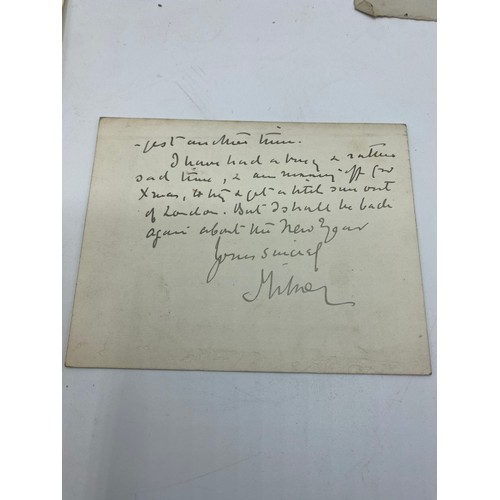 -gest another time.
I have had a busy & rather
sad time, & am running off for
Xmas, to try & get a little sun out
of London. But I shall be back
again about the New Year
Yours sincerely
Milner